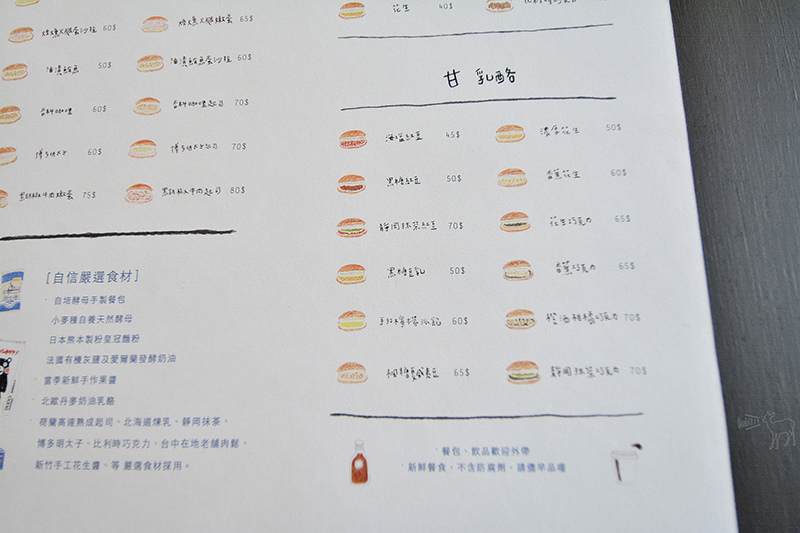 花生 40$
焙燻火腿蛋沙拉 60$
焙燻火腿嫩蛋 65$
油漬鮪魚 50$
油漬鮪魚蛋沙拉 60$
60$
70$
博多明太子 60$
博多明太子起司 70$
黑胡椒牛肉嫩蛋 75$
黑胡椒牛肉起司 80$
甘 乳酪
海鹽紅豆 45$
濃厚花生 50$
黑糖紅豆 50$
香蕉花生 60$
靜岡抹茶紅豆 70$
花生巧克力 65$
黑糖豆乳 50$
香蕉巧克力 65$
60$
橙酒柑橘巧克力 70$
65$
靜岡抹茶巧克力 70$
[自信嚴選食材]
自培酵母手製餐包
小麥種自養天然酵母
日本熊本製粉皇冠麵粉
法國有機灰鹽及愛爾蘭發酵奶油
當季新鮮手作果醬
北歐丹麥奶油乳酪
荷蘭高達熟成起司、北海道煉乳、靜岡抹茶。
博多明太子、比利時巧克力、台中在地老舖肉鬆、
新竹手工花生醬、等 嚴選食材採用。
餐包、飲品歡迎外帶
新鮮餐食、不含防腐劑、請儘早品嚐